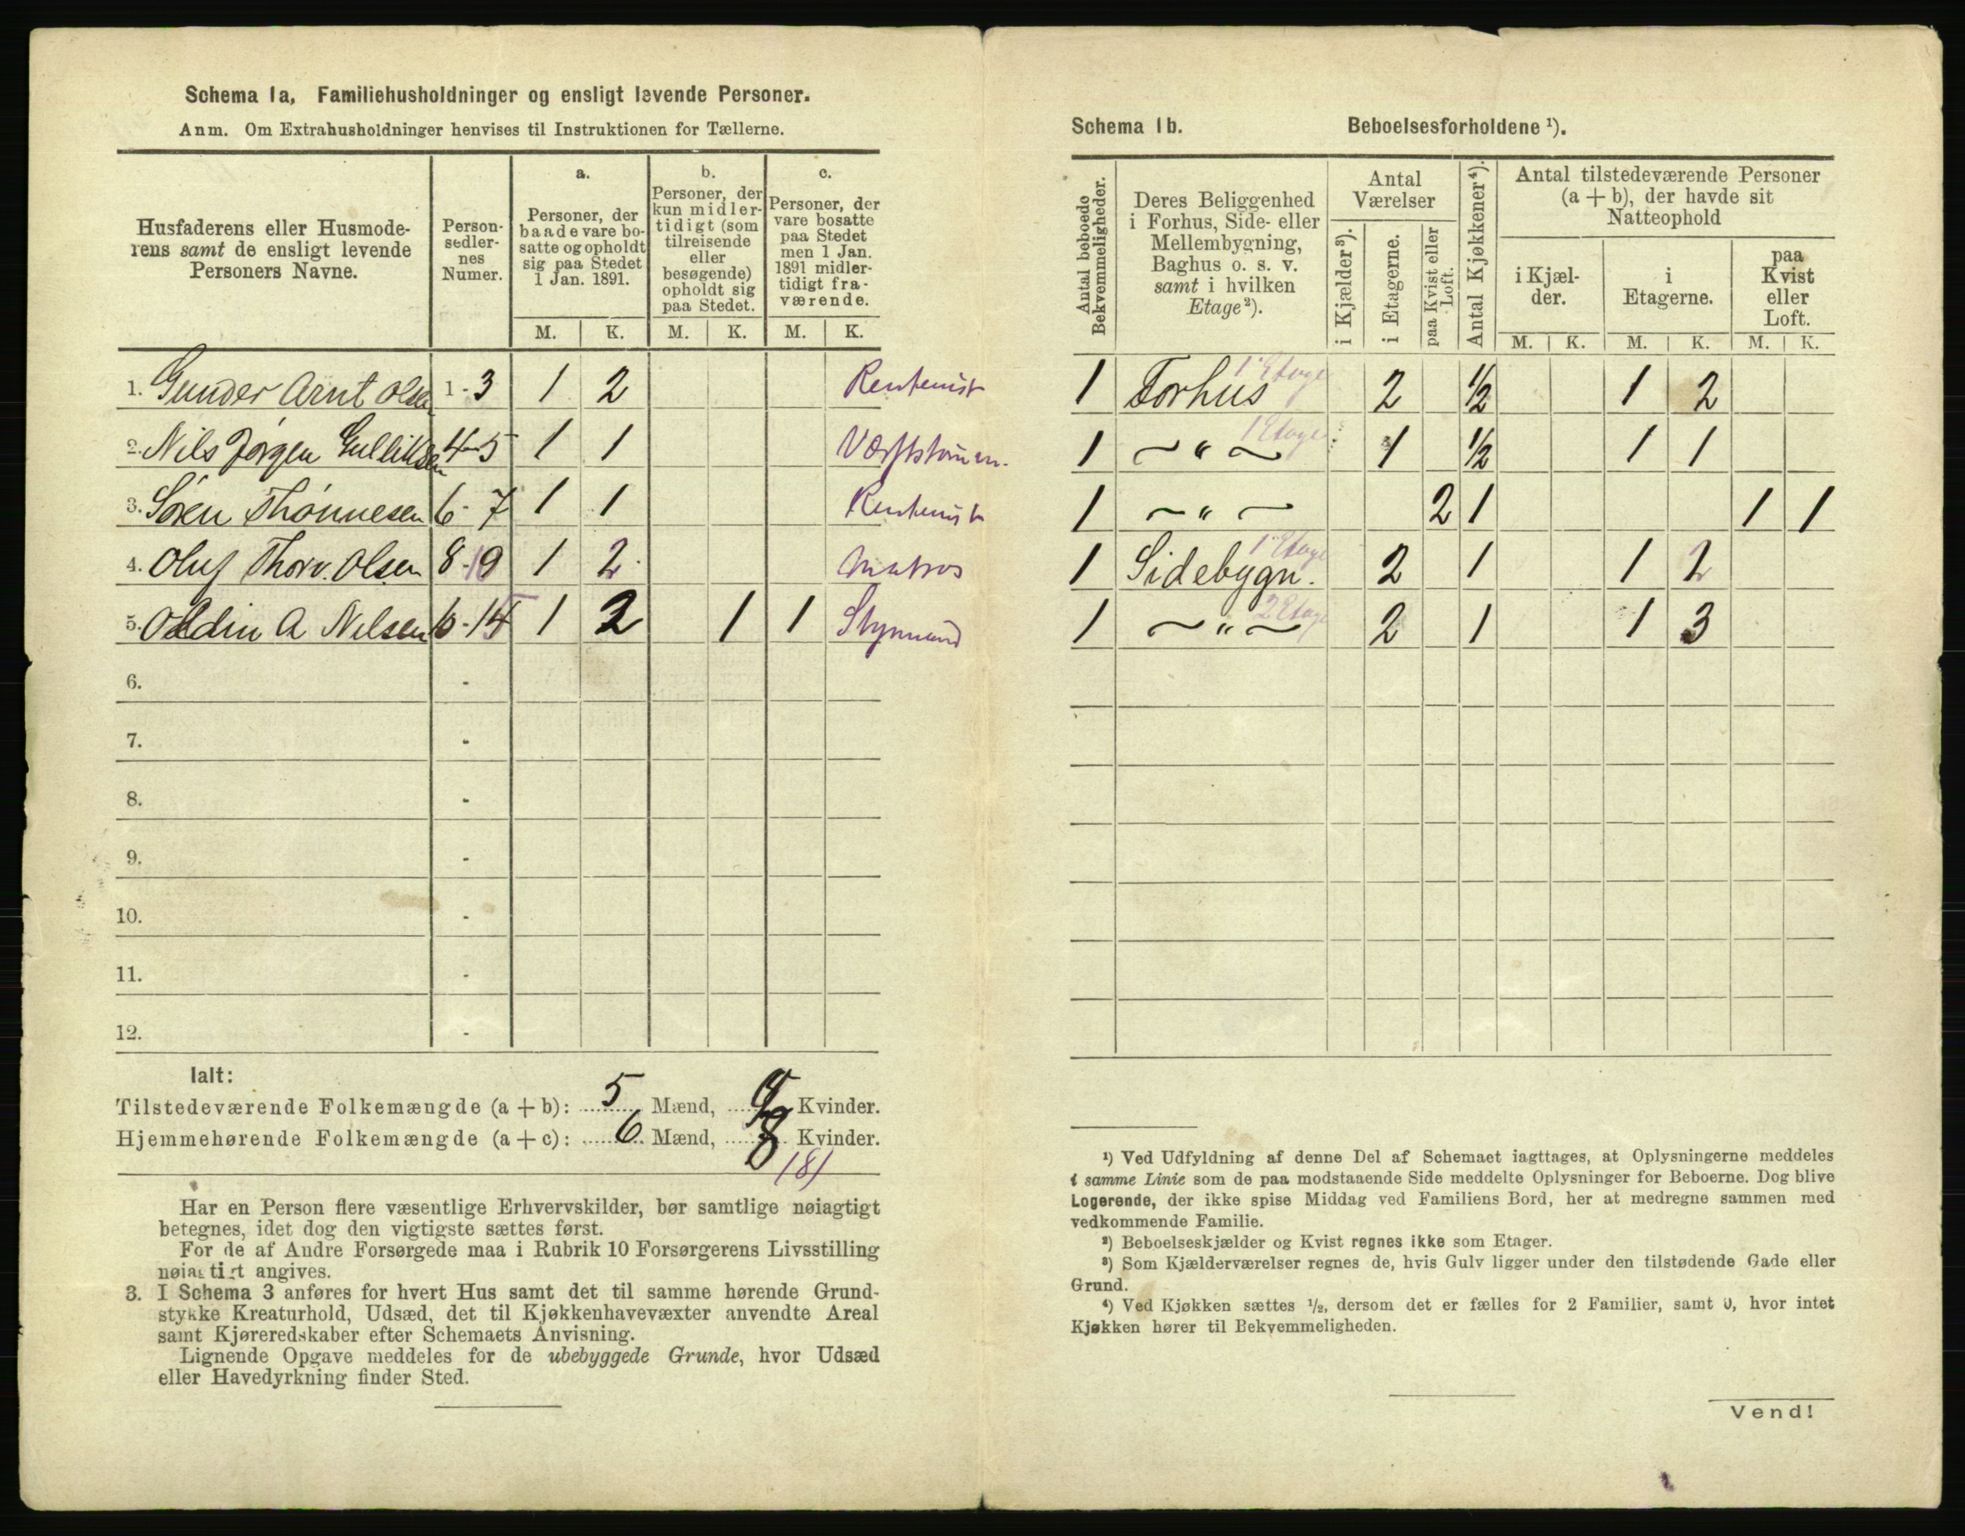 Schema 1a, Familiehusholdninger og ensligt levende Personer.
Anm. Om Extrahusholdninger henvises til Instruktionen for Tællerne.
Husfaderens eller Husmoderens samt de ensligt levende Personers Navne.
Personsedlernes Numer.
a. Personer, der baade vare bosatte og opholdt sig paa Stedet 1 Jan. 1891.
b. Personer, der kun midlertidigt (som tilreisende eller besøgende) opholdt sig paa Stedet.
c. Personer, der vare bosatte paa Stedet men 1 Jan. 1891 midlertidigt fraværende.
M. K. M. K. M. K.
1. Gunder Arnt Olsen 1 - 3 1 2 Rentenist
2. Nils Jørgen Gulliksen 4-5 1 1 Værftstømm.
3. Søren Thønnesen 6 - 7 1 1 Rentenist
4. Oluf Thorv. Olsen 8 - 10 1 2 Matros
5. Oldin A Nilsen 1 2 1 1 Styrmand
6. -
7. -
8. -
9. -
10. -
11. -
12. -
Ialt:
Tilstedeværende Folkemængde (a + b): 5 Mænd, 9 Kvinder.
Hjemmehørende Folkemængde (a + c): 6 Mænd, 8 Kvinder.
(8)
Har en Person flere væsentlige Erhvervskilder, bør samtlige nøiagtigt
betegnes, idet dog den vigtigste sættes først.
For de af Andre Forsørgede maa i Rubrik 10 Forsørgerens Livsstilling
nøiagtigt angives.
3. I Schema 3 anføres for hvert Hus samt det til samme hørende Grund-
stykke Kreaturhold, Udsæd, det til Kjøkkenhavevæxter anvendte Areal
samt Kjøreredskaber efter Schemaets Anvisning.
Lignende Opgave meddeles for de ubebyggede Grunde, hvor Udsæd
eller Havedyrkning finder Sted.
Schema 1b. Beboelsesforholdene ¹).
Antal beboede Bekvemmeligheder.
Deres Beliggenhed i Forhus, Side- eller Mellembygning, Baghus o. s. v. samt i hvilken Etage²).
Antal Værelser
i Kjælder³).
i Etagerne.
paa Kvist eller Loft.
Antal Kjøkkener⁴).
Antal tilstedeværende Personer (a + b), der havde sit Natteophold
i Kjælder.
i Etagerne.
paa Kvist eller Loft.
M. K. M. K. M. K.
1 Forhus 1 Etage 2 ½ 1 2
1 〃 1 Etage 1 ½ 1 1
1 〃 2 1 1 1
1 Sidebygn. 1 Etage 2 1 1 2
1 〃 2 Etage 2 1 1 3
¹) Ved Udfyldning af denne Del af Schemaet iagttages, at Oplysningerne meddeles
i samme Linie som de paa modstaaende Side meddelte Oplysninger for Beboerne. Dog blive
Logerende, der ikke spise Middag ved Familiens Bord, her at medregne sammen med
vedkommende Familie.
²) Beboelseskjælder og Kvist regnes ikke som Etager.
³) Som Kjælderværelser regnes de, hvis Gulv ligger under den tilstødende Gade eller
Grund.
⁴) Ved Kjøkken sættes ½, dersom det er fælles for 2 Familier, samt 0, hvor intet
Kjøkken hører til Bekvemmeligheden.
Vend!